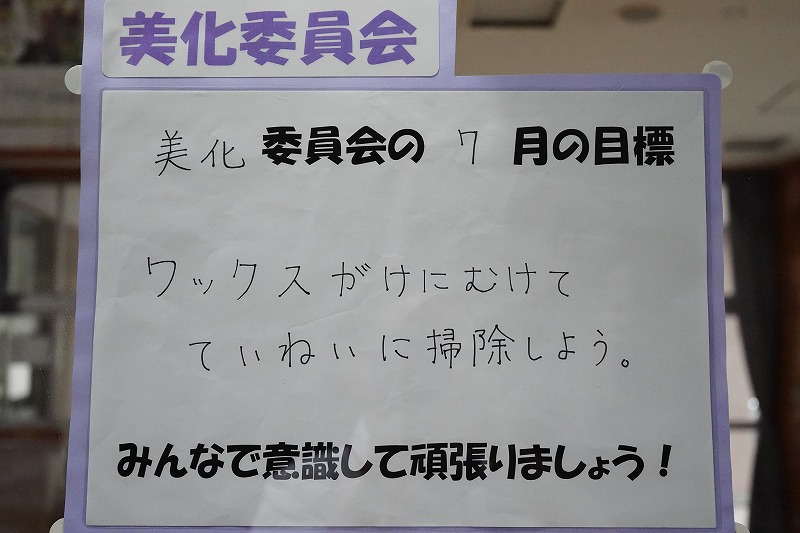 美化委員会
美化 委員会の 7 月の目標
ワックスがけにむけて
ていねいに掃除しよう。
みんなで意識して頑張りましょう！